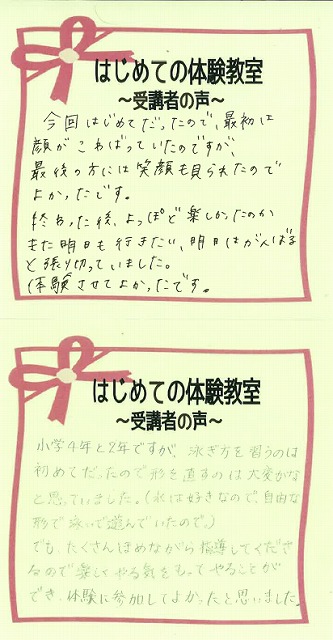 はじめての体験教室
～受講者の声～
今回はじめてだったので、最初は
顔がこわばっていたのですが、
最後の方には笑顔も見られたので
よかったです。
終わった後、よっぽど楽しかったのか
また明日も行きたい、明日はがんばる
と張り切っていました。
体験させてよかったです。
はじめての体験教室
～受講者の声～
小学4年と2年ですが、泳ぎ方を習うのは
初めてだったので形を直すのは大変かな
と思っていました。(水は好きなので、自由な
形で泳いで遊んでいたので。)
でも、たくさんほめながら指導してくださ
るので楽しくやる気をもってやることが
でき、体験に参加してよかったと思いました。